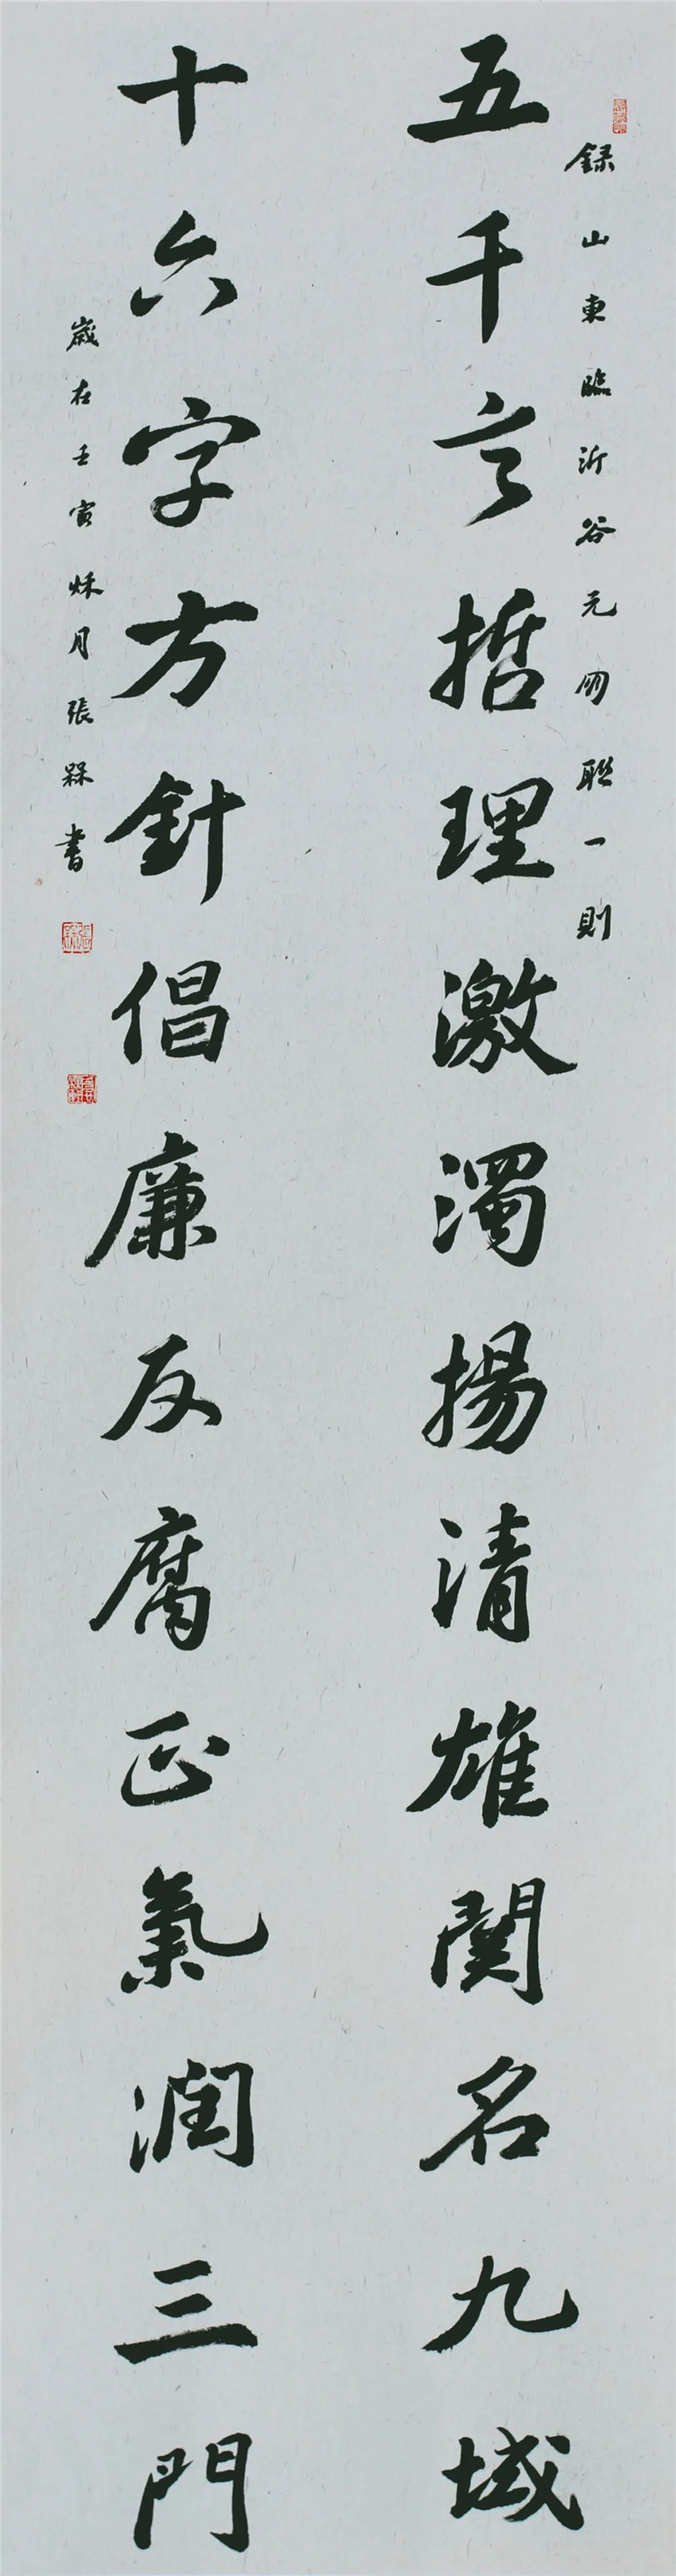 録山東臨沂谷元明聯一則
五千言哲理激濁揚清雄關名九域
十六字方針倡廉反腐正氣潤三門
歲在壬寅秌月張槑書